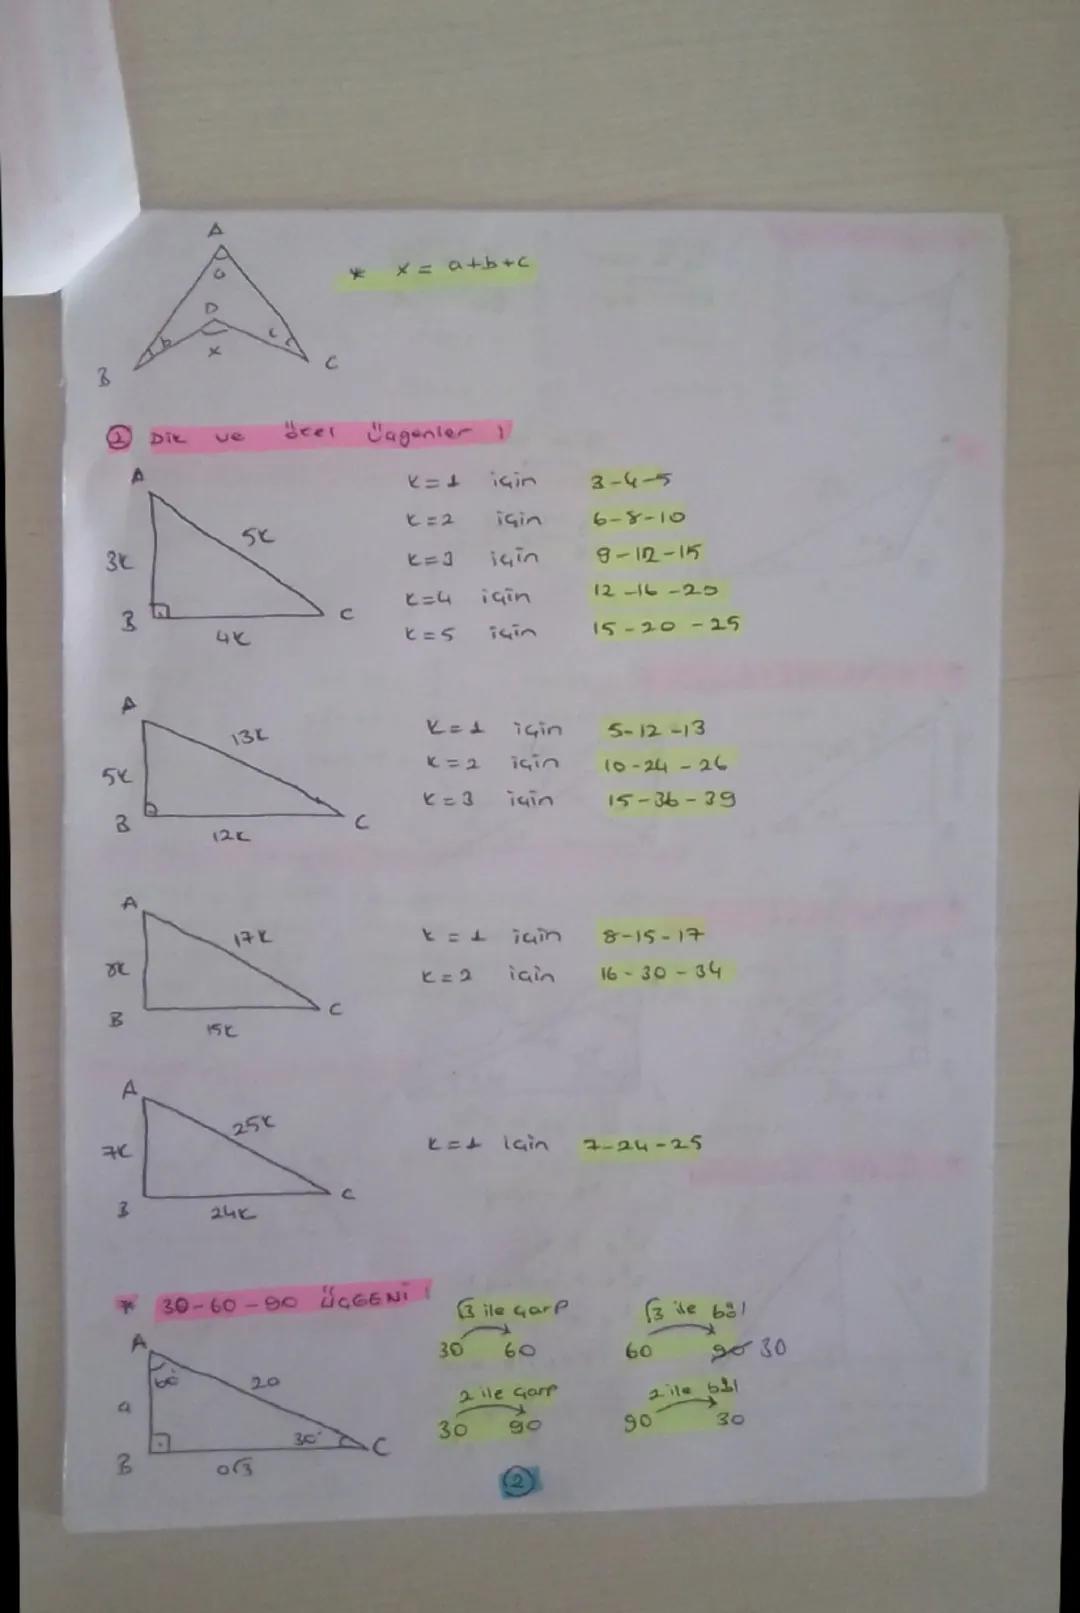 A
a
* x = a+b+c
D
b
c
x
B
C
② Dik ve özel üçgenler ;
A
3k
5k
B
4k
C
k=1 için 3-4-5
k=2 için 6-8-10
k=3 için 9-12-15
k=4 için 12-16-20
k=5 için 15-20-25
A
5k
13k
B
12k
C
k=1 için 5-12-13
k=2 için 10-24-26
k=3 için 15-36-39
A
8k
17k
B
15k
C
k=1 için 8-15-17
k=2 için 16-30-34
A
7k
25k
B
24k
C
k=1 için 7-24-25
* 30-60-90 ÜÇGENİ ;
A
60°
a
2a
B
a√3
30°
C
√3 ile çarp
30 60
√3 ile böl
60 90 30
2 ile çarp
30 90
2 ile böl
90 30
2